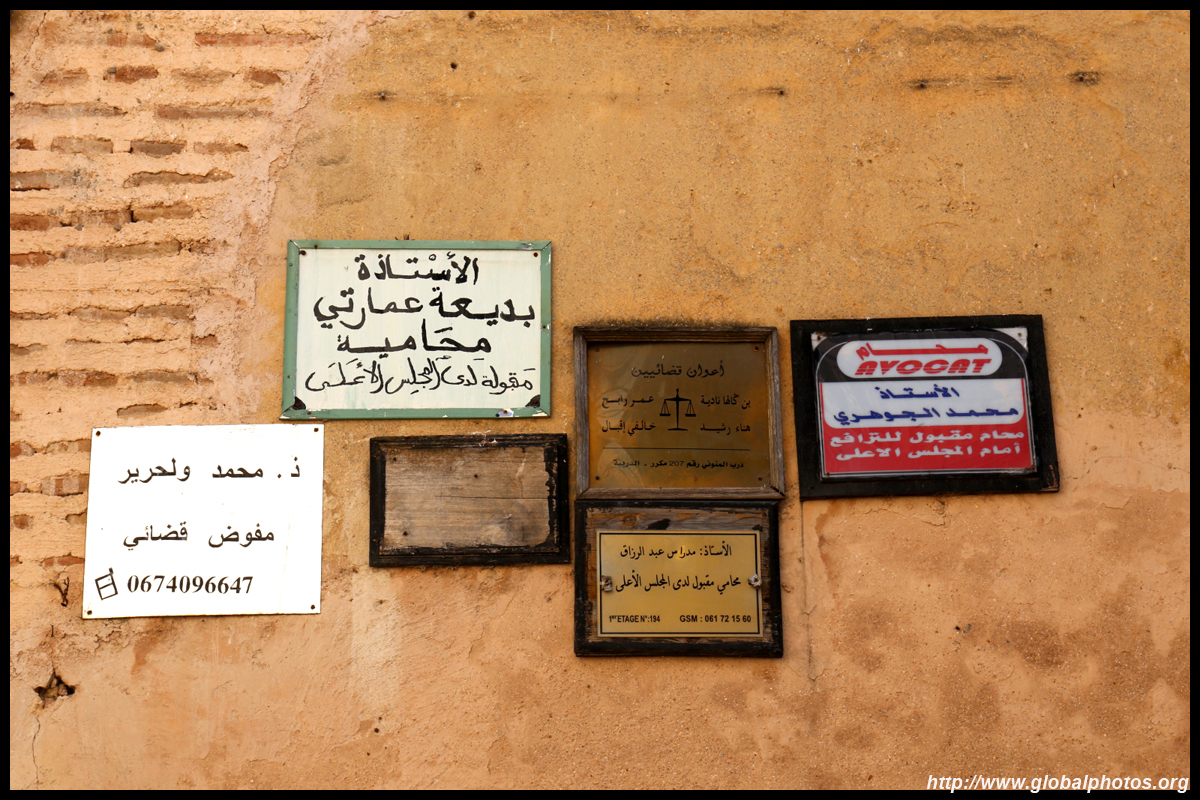 الأسْتاذة
بديعة عمارتي
مِحَامية
مَقبولة لدى المجلس الأعلى
ذ. محمد ولحرير
مفوض قضائي
0674096647
أعوان قضائيين
بن گالها نادية عمر رابح
هناء رشيد خالفي إقبال
درب المنوني رقم 207 مكرر - القربة
الأستاذ: مدراس عبد الرزاق
محامي مقبول لدى المجلس الأعلى
1er ETAGE N°:194 GSM : 061 72 15 60
محام
AVOCAT
الأستاذ
محمد الجوهري
محام مقبول للترافع
أمام المجلس الاعلى
http://www.globalphotos.org